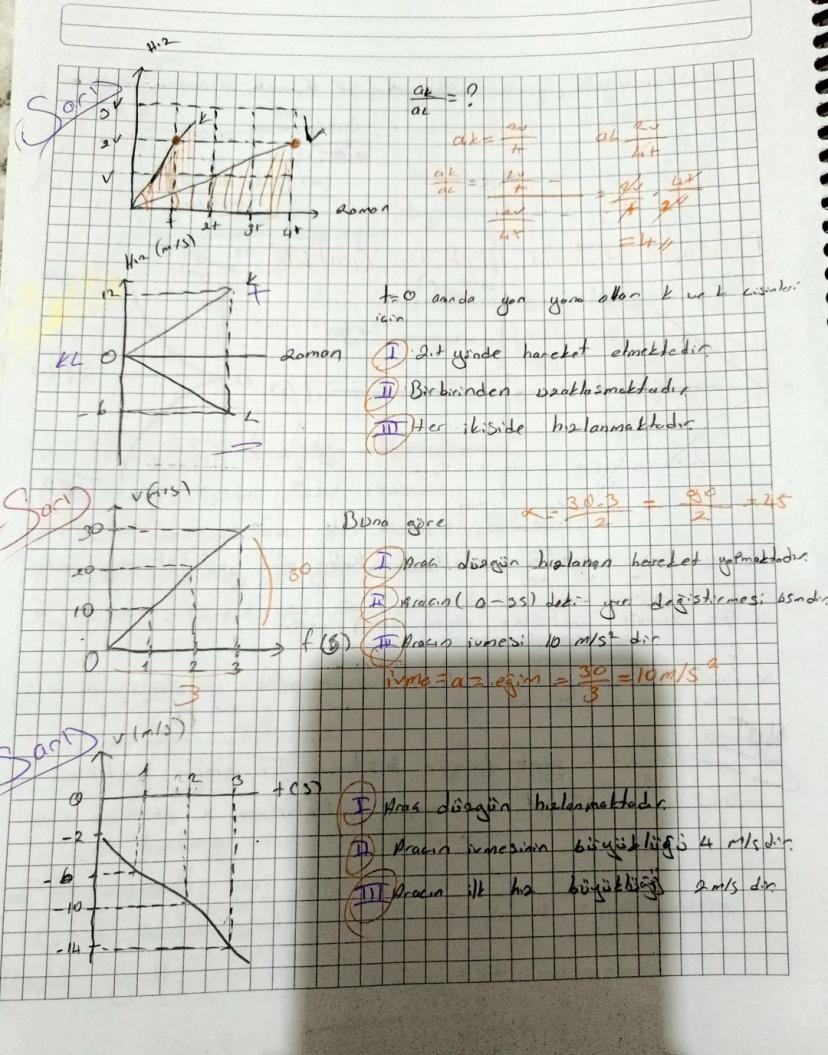 Hız
Sarı
3v
2v
v
K
L
t 2t 3t 4t
zaman
aK/aL = ?
aK = 2v/t aL 2v/4t
aK/aL = 2v/t / 2v/4t = 2v/t . 4t/2v
= 4
Hız (m/s)
12
K
KL 0 zaman
-6 L
t=0 anında yan yana olan K ve L cisimleri
için
I zıt yönde hareket etmektedir.
II Birbirinden uzaklaşmaktadır
III Her ikiside hızlanmaktadır.
Sarı
v(m/s)
30
20
10
0 1 2 3
30
3
Buna göre
x = 30.3/2 = 90/2 = 45
I Araç düzgün hızlanan hareket yapmaktadır.
II Aracın (0-3s) deki yer değiştirmesi
III Aracın ivmesi 10 m/s² dir
ivme = a = eğim = 30/3 = 10 m/s²
Sarı
v(m/s)
1 2 3 t(s)
0
-2
-6
-10
-14
I Araç düzgün hızlanmaktadır.
II Aracın ivmesinin büyüklüğü 4 m/s dir.
III Aracın ilk hız büyüklüğü 2m/s dir.